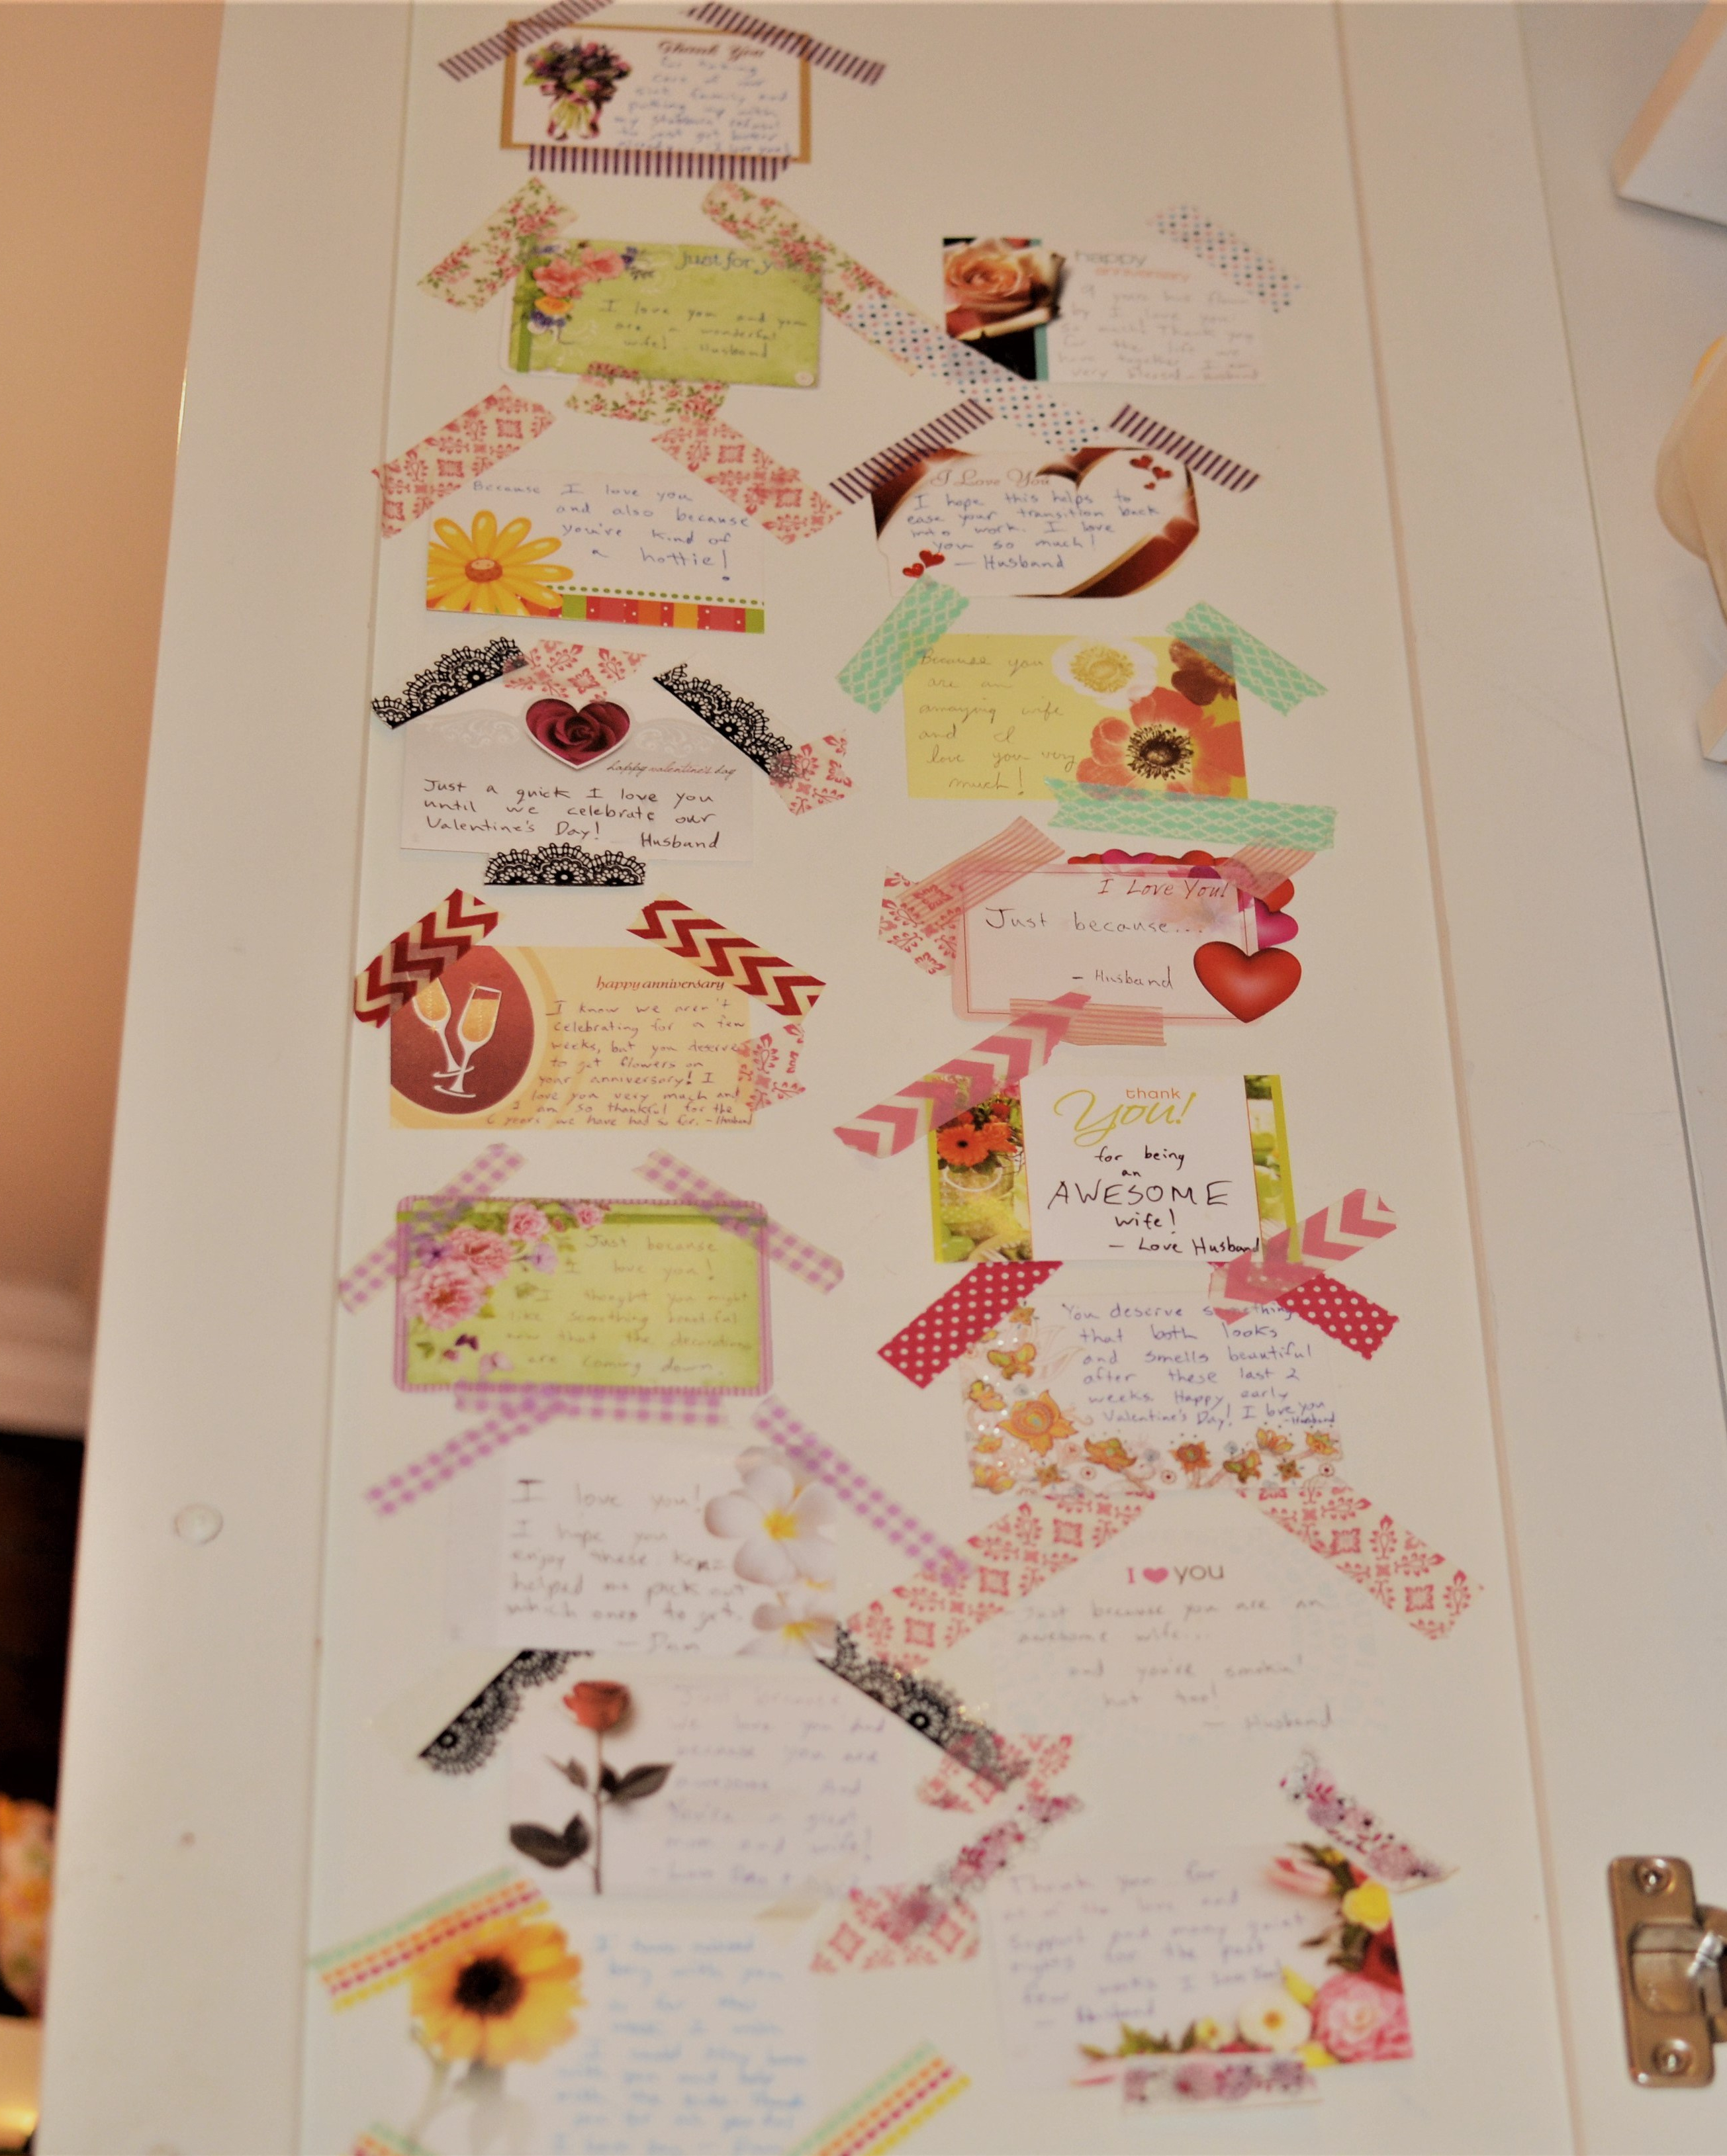 Thank You
for taking
care of our
sick family and
putting up with
my stubborn refusal
to just get better
already... I love you!
just for you
I love you and you
are a wonderful
wife! Husband
happy
anniversary
9 years has flown
by I love you
so much! Thank you
for the life we
have together. I am
very blessed - Husband
Because I love you
and also because
you're kind of
a hottie!
I Love You
I hope this helps to
ease your transition back
into work. I love
you so much!
- Husband
happy valentine's day
Just a quick I love you
until we celebrate our
Valentine's Day! Husband
Because you
are an
amazing wife
and I
love you very
much!
I Love You!
Just because...
- Husband
happy anniversary
I know we aren't
celebrating for a few
weeks, but you deserve
to get flowers on
your anniversary! I
love you very much and
I am so thankful for the
6 years we have had so far. - Husband
thank
You!
for being
an
AWESOME
wife!
- Love Husband
Just because
I love you!
I thought you might
like something beautiful
now that the decorations
are coming down.
You deserve something
that both looks
and smells beautiful
after these last 2
weeks. Happy early
Valentine's Day! I love you
- Husband
I love you!
I hope you
enjoy these
helped me pick out
which ones to get.
- Dan
I ♥ you
Just because you are an
awesome wife...
and you're smokin'
hot too!
- Husband
Just because
we love you
because you are
awesome... And
You're a great
mom and wife!
- Love Dan
Thank you for
all of the love and
support and many quiet
nights for the past
few weeks I
- Husband
I
with you